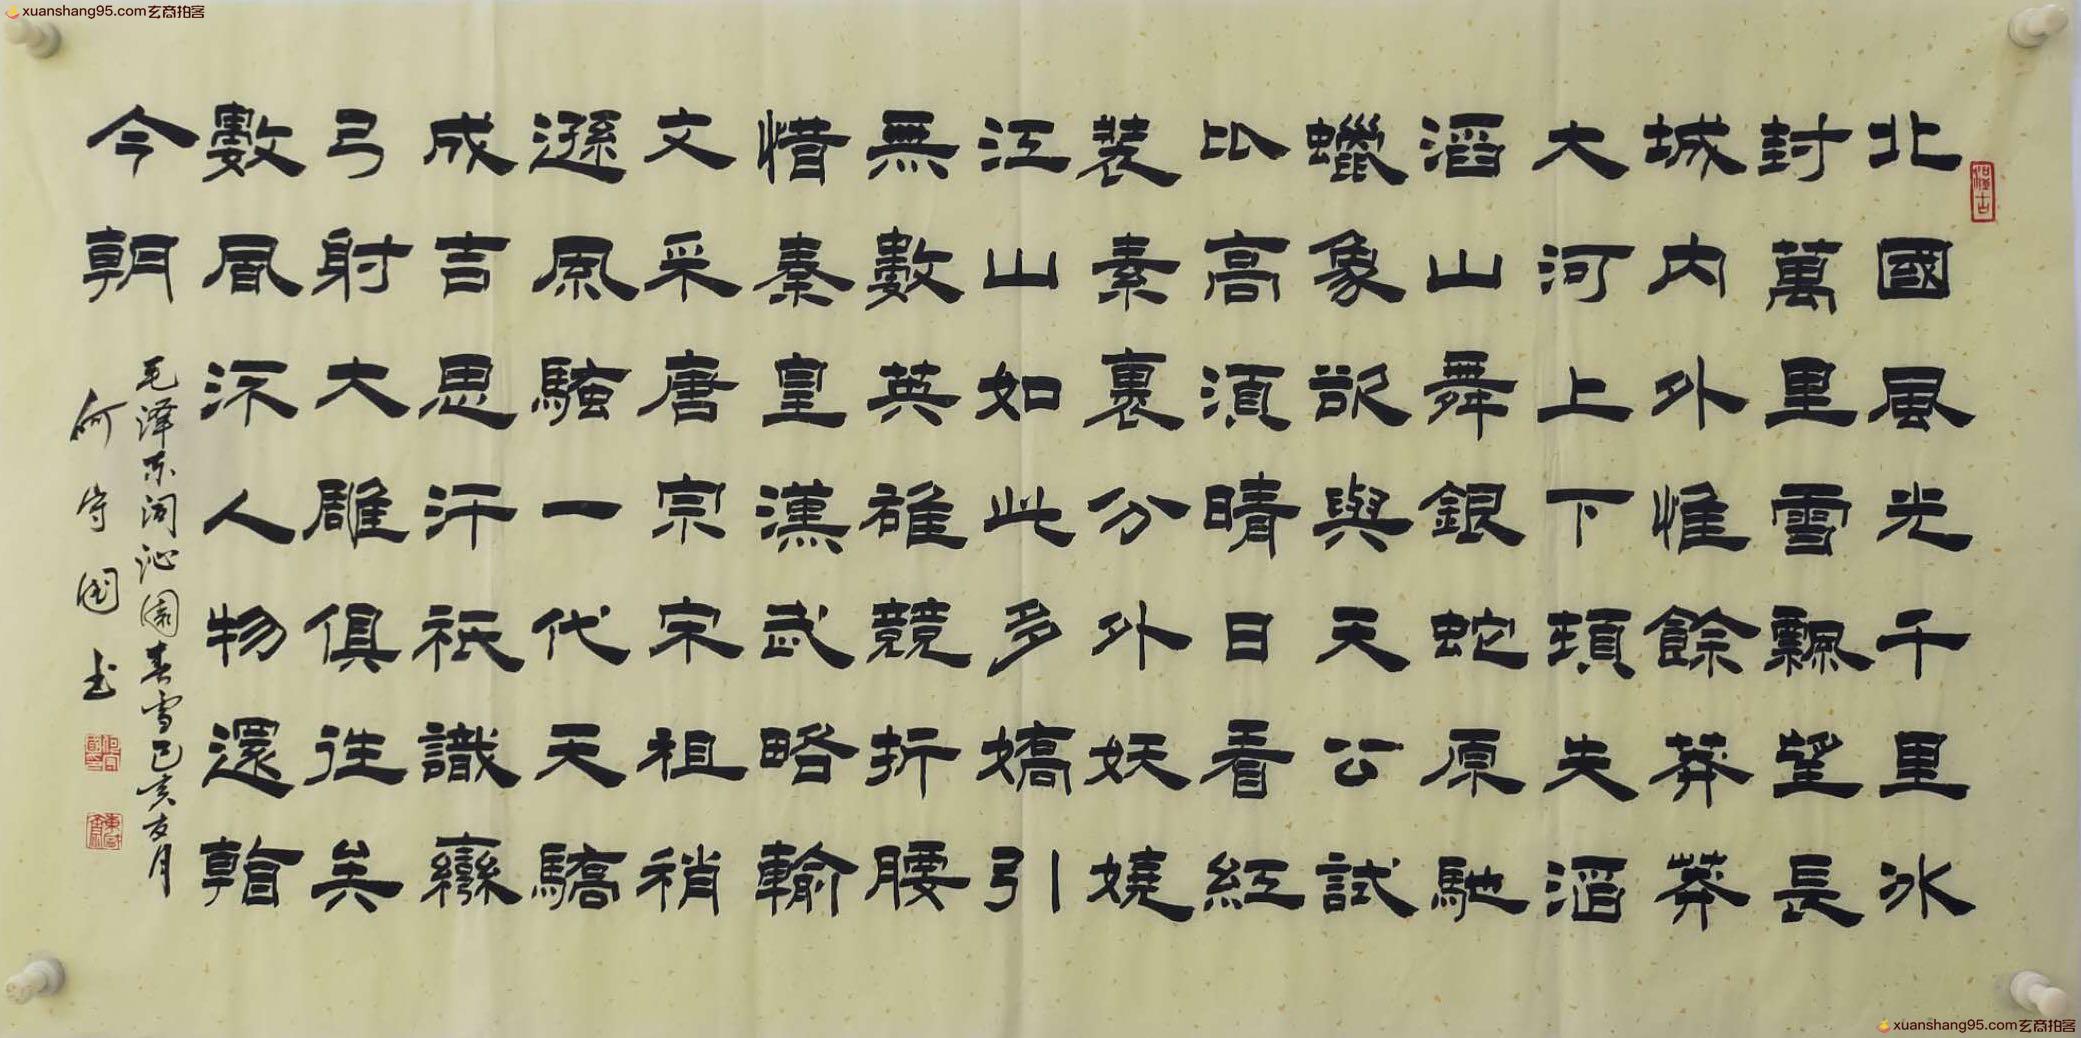 xuanshang95.com玄商拍客
北國風光千里冰
封萬里雪飄望長
城内外惟餘莽莽
大河上下頓失滔
滔山舞銀蛇原馳
蠟象欲與天公試
比高須晴日看紅
裝素裹分外妖嬈
江山如此多嬌引
無數英雄競折腰
惜秦皇漢武略輸
文采唐宗宋祖稍
遜風騷一代天驕
成吉思汗祇識彎
弓射大雕俱往矣
數風流人物還看
今朝
毛泽东词沁園春雪己亥月
何守國书
xuanshang95.com玄商拍客